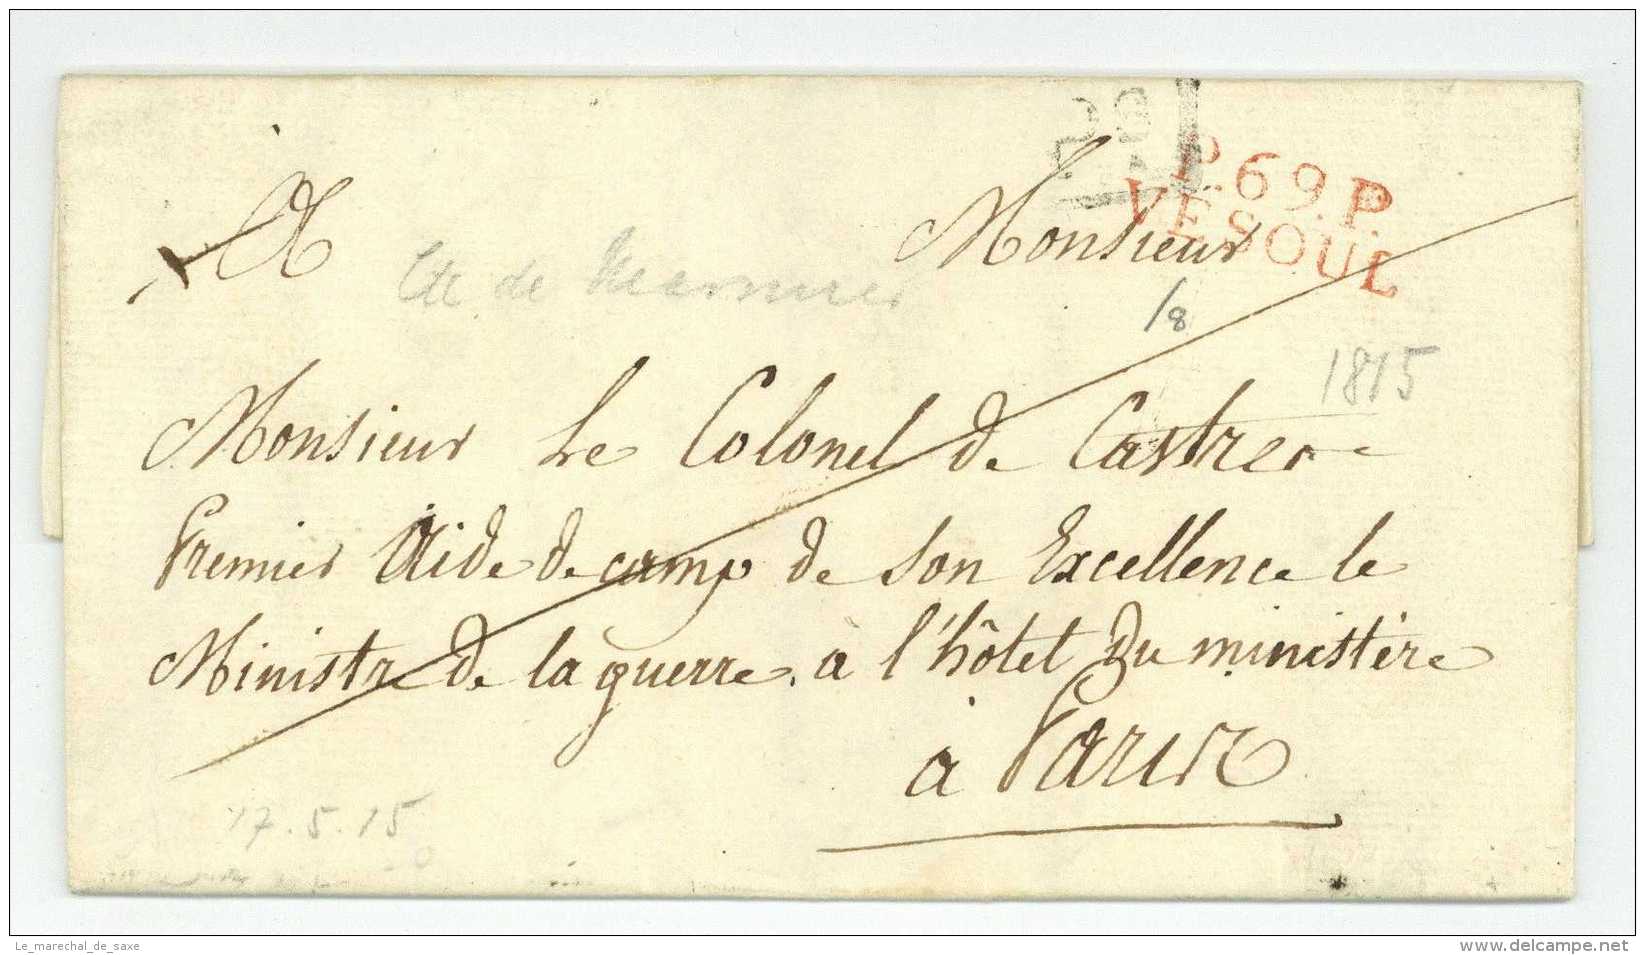 P.69.P.
VESOUL
Monsieur
Cte de
/8
1815
Monsieur Le Colonel de Castres
Premier Aide de camp de son Excellence le
Ministre de la guerre. à l'hôtel Du ministère
à Paris
17.5.15
Le_marechal_de_saxe
www.delcampe.net